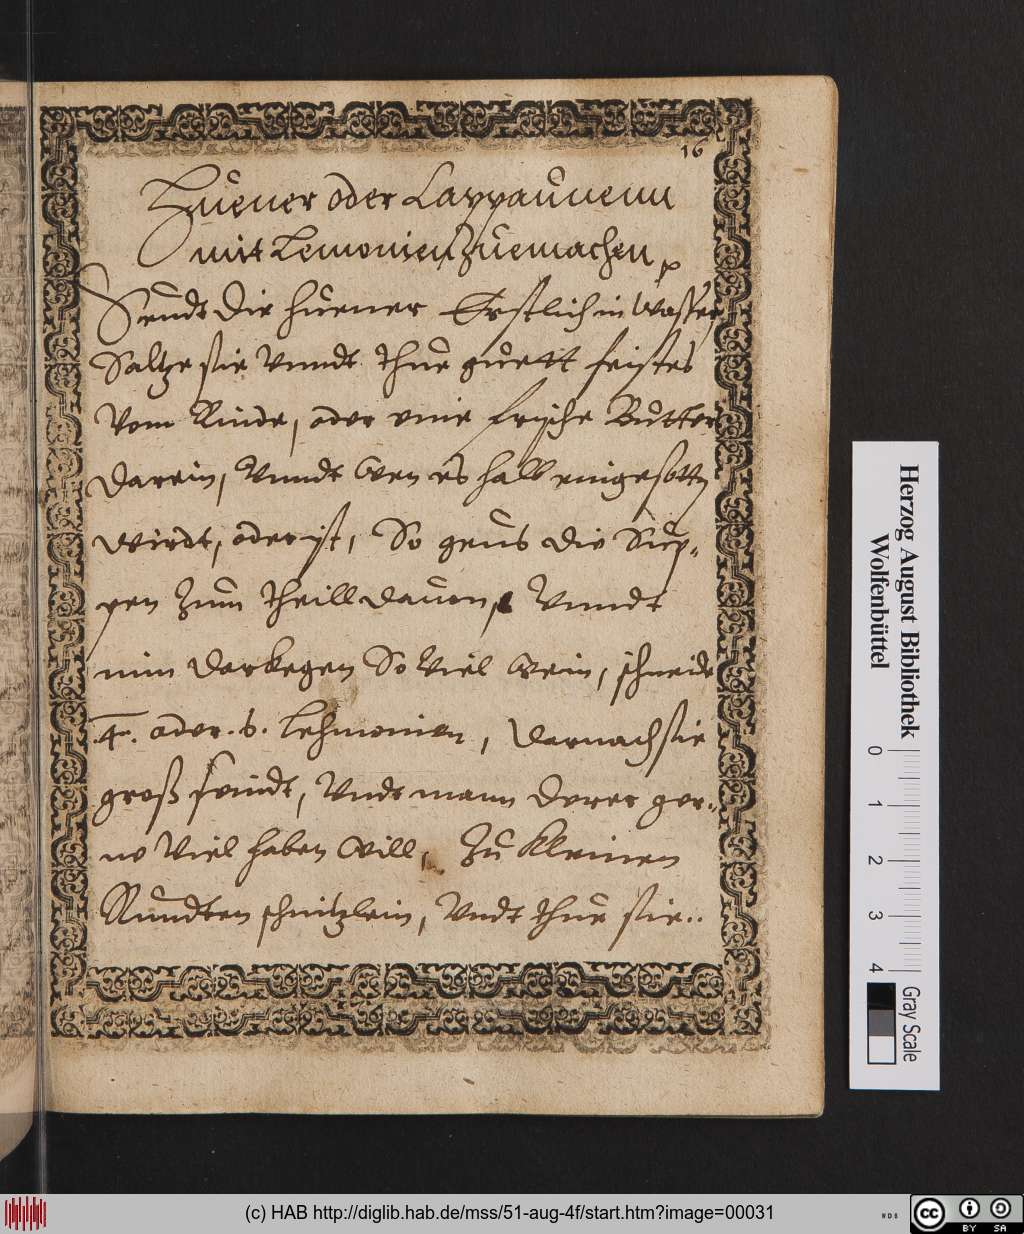 16
Huener oder Cappaunenn
mit Lemonien Zuemachen
Seudt die huener Erstlich in Wasser,
Saltze sie Vnndt thue guett feistes
Vom Rinde, oder eine frische Butter
darein, Vnndt Wen es halb eingesottn
wirdt, oder ist, So geus die Sup-
pen Zum theill dauon, Vnndt
nim darkegen So Viel Wein, schneide
4. oder .6. Lehmonien, darnach sie
groß seindt, Vndt mann derer ger-
ne Viel haben Will, Zu Kleinen
Rundten schnitzlein, Vndt thue sie..
Herzog August Bibliothek
Wolfenbüttel
0 1 2 3 4
Gray Scale
(c) HAB http://diglib.hab.de/mss/51-aug-4f/start.htm?image=00031
WDB
cc BY SA